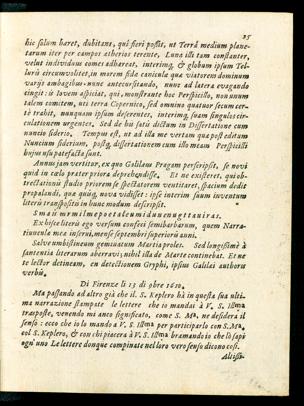 25
hic solum hæret, dubitans, qui fieri possit, ut Terra medium plane-
tarum iter per campos æthereos terente, Luna illi tam constanter,
velut individuus comes adhæreat, interimq, & globum ipsum Tel-
luris circumvolitet, in morem fidæ caniculæ quæ viatorem dominum
varijs ambagibus nunc antecursitando, nunc ad latera evagando
cingit: is Iovem aspiciat, qui, monstrante hoc Perspicillo, non unum
talem comitem, uti terra Copernico, sed omnino quatuor secum cer-
tè trahit, nunquam ipsum deserentes, interimq, suam singulos cir-
culationem urgentes. Sed de his satis dictum in Dissertatione cum
nuncio siderio. Tempus est, ut ad illa me vertam quæ post editam
Nuncium sidereum, postq, dissertationem cum illo meam Perspicilli
hujus usu patefacta sunt.
Annus jam vertitur, ex quo Galilæus Pragam perscripsit, se novi
quid in cælo præter priora deprehendisse. Et ne existeret, qui ob-
trectationis studio priorem se spectatorem venditaret, spacium dedit
propalandi, quæ quisq, nova vidisset: ipse interim suum inventum
literis transpositis in hunc modum descripsit.
S m a i s m r m i l m e p o e t a l e u m i b u n e n u g t t a u i r a s.
Ex hisce literis ego versum confeci semibarbarum, quem Narra-
tiunculæ meæ inserui, mense septembri superioris anni.
Salve umbistineum geminatum Martia proles. Sed longissimè à
sententia literarum aberravi; nihil illa de Marte continebat. Et ne
te lector detineam, en detectionem Gryphi, ipsius Galilæi authoris
verbis.
Di Firenze li 13 di 9bre 1610.
Ma passando ad altro già che il S. Keplero hà in questa sua ulti-
ma narrazione stampate le lettere che io mandai à V. S. Illma
trasposte, venendo mi anco significato, come S. Mà. ne desidera il
senso: ecco che io lo mando a V. S. Illma per participarlo con S. Mà,
col S. Keplero, & con chi piacerà à V. S. Illma bramando io che lo sapi
ogn'uno Le lettere donque compinate nel loro vero senso dicono così.
Altissi-